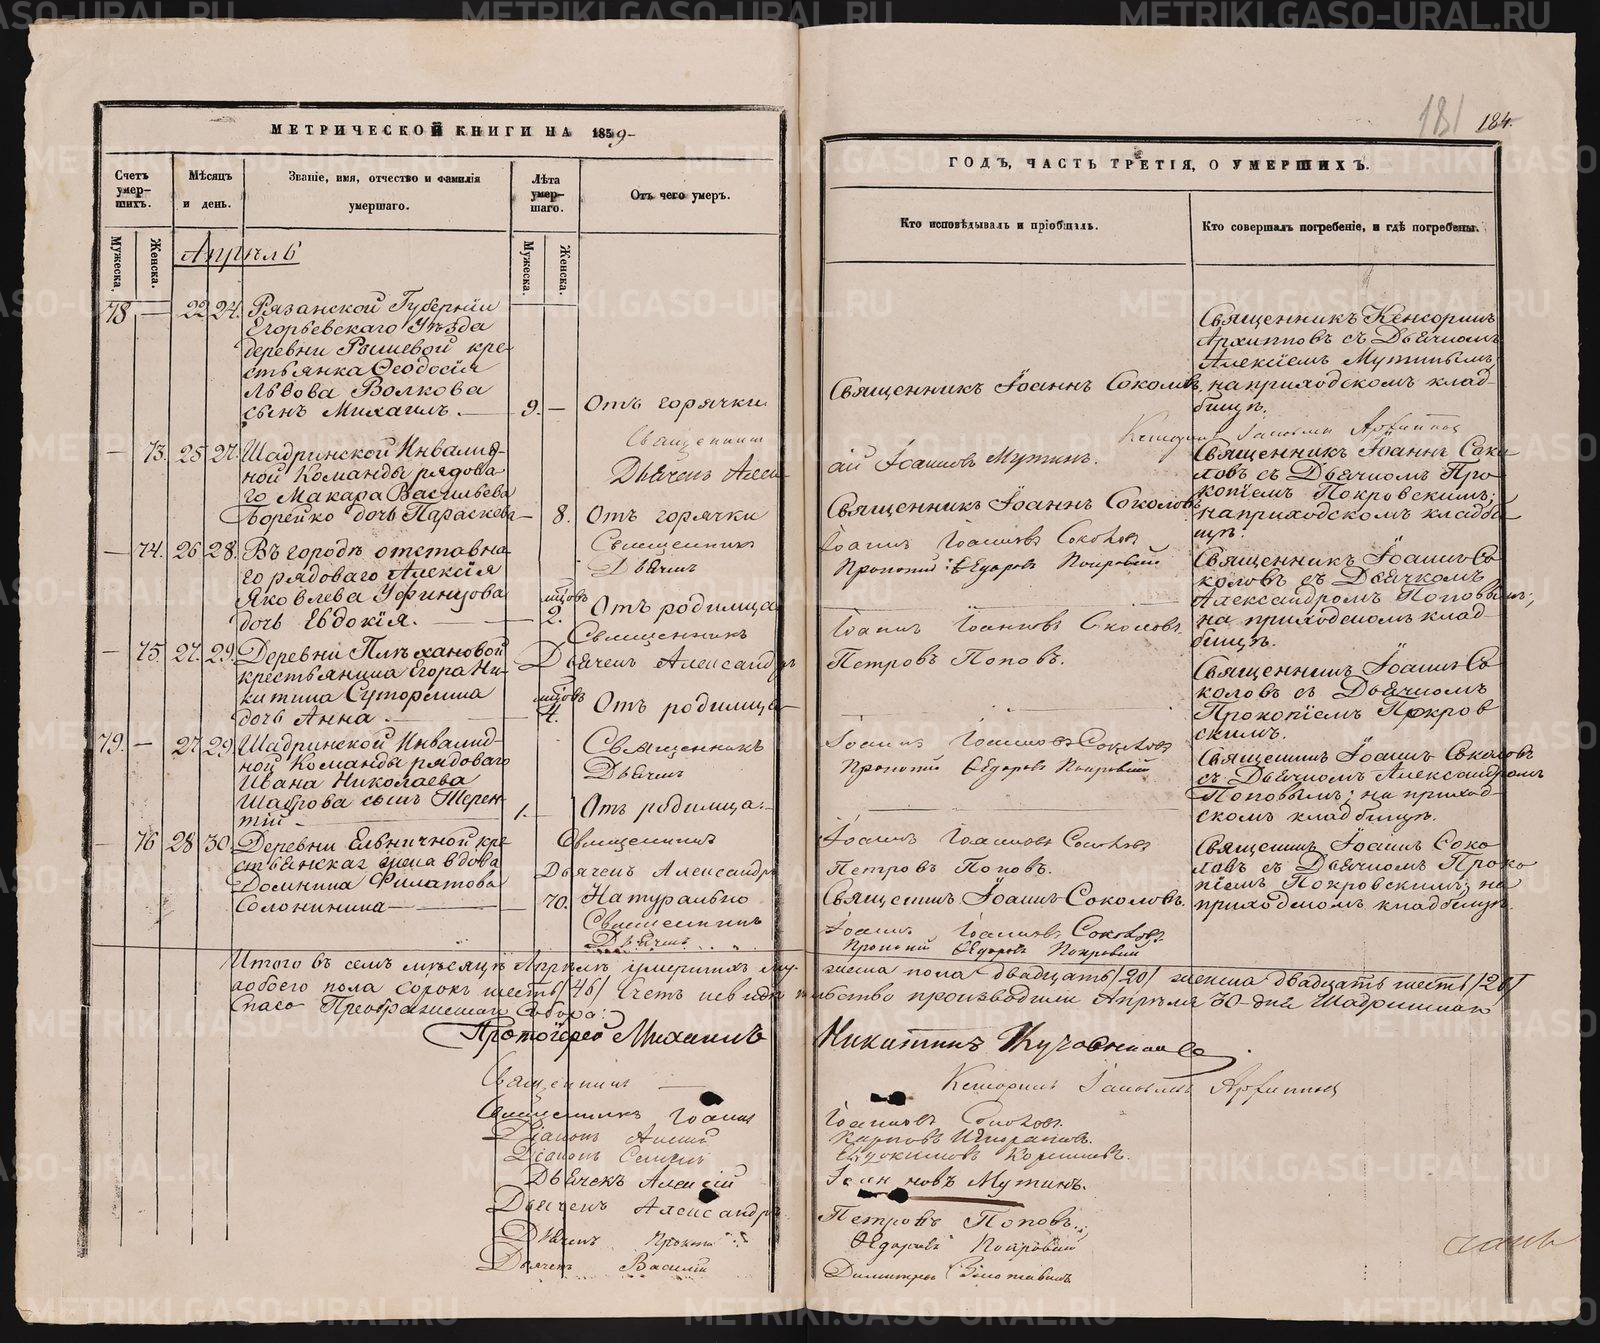 МЕТРИЧЕСКОЙ КНИГИ НА 1859
Счетъ умер-шихъ.
Мѣсяцъ и день.
Званіе, имя, отчество и фамилія умершаго.
Лѣта умер-шаго.
Отъ чего умеръ.
Мужеска.
Женска.
Мужеска.
Женска.
Апрѣль
78 — 22 24. Рязанской Губерніи
Егорьевскаго Уѣзда
деревни кре-
стьянка Ѳеодосія
Львова Волкова
сынъ Михаилъ. — 9. — Отъ горячки
Священникъ
— 73. 25 27. Шадринской Инвалид-
ной Команды рядова-
го Макара Васильева
Борейко дочь Параскева — 8. Отъ горячки
Дьячекъ Алек-
Священникъ
Дьячекъ
— 74. 26 28. Въ городѣ отставна-
го рядоваго Алексія
Яковлева
дочь Евдокія. — мѣцовъ 2. Отъ родимца
Священникъ
Дьячекъ Александръ
— 75. 27. 29. Деревни
крестьянина Егора Ни-
китина Сутормина
дочь Анна. — мѣцовъ 4. Отъ родимца
Священникъ
Дьячекъ
79. — 27 29. Шадринской Инвалид-
ной Команды рядоваго
Ивана Николаева
Шаврова сынъ Терен-
тій — 1. — Отъ родимца.
Священникъ
Дьячекъ Александръ
— 76 28 30. Деревни Ельничной кре-
стьянская жена вдова
Домнина Филатова
Солонинина — 70. Натурально
Священникъ
Дьячекъ
Итого въ семъ мѣсяцѣ Апрѣлѣ умершихъ му-
обоего пола сорокъ шесть /46/
Спасо Преображенскаго Собора:
Протоіерей Михаилъ
Священникъ
Священникъ Іоаннъ
Діаконъ
Діаконъ
Дьячекъ Алексій
Дьячекъ Александръ
Дьячекъ
Дьячекъ Василій
181 184.
ГОДЪ, ЧАСТЬ ТРЕТІЯ, О УМЕРШИХЪ.
Кто исповѣдывалъ и пріобщалъ.
Кто совершалъ погребеніе, и гдѣ погребены.
Священникъ Іоаннъ Соколовъ
Священникъ Кенсоринъ
Архипповъ съ Дьячкомъ
Алексіемъ Мутинымъ;
на приходскомъ клад-
бищѣ.
сій Іоанновъ Мутинъ.
Священникъ Іоаннъ Соколовъ
Священникъ Іоаннъ Соко-
ловъ съ Дьячкомъ Про-
копіемъ Покровскимъ;
на приходскомъ кладби-
щѣ.
Іоаннъ Іоанновъ Соколовъ
Прокопій Ѳедоровъ Покровскій
Священникъ Іоаннъ Со-
коловъ съ Дьячкомъ
Александромъ Поповымъ;
на приходскомъ клад-
бищѣ.
Іоаннъ Іоанновъ Соколовъ.
Петровъ Поповъ.
Священникъ Іоаннъ Со-
коловъ съ Дьячкомъ
Прокопіемъ Покров-
скимъ.
Іоаннъ Іоанновъ Соколовъ
Прокопій Ѳедоровъ Покровскій
Священникъ Іоаннъ Соколовъ
съ Дьячкомъ Александромъ
Поповымъ; на приход-
скомъ кладбищѣ.
Іоаннъ Іоанновъ Соколовъ
Петровъ Поповъ.
Священникъ Іоаннъ Соколовъ.
Священникъ Іоаннъ Соко-
ловъ съ Дьячкомъ Проко-
піемъ Покровскимъ; на
приходскомъ кладбищѣ.
Іоаннъ Іоанновъ Соколовъ.
Прокопій Ѳедоровъ Покровскій
жеска пола двадцать /20/ женска двадцать шесть /26/
производили Апрѣля 30 дня
Никитинъ
Іоанновъ Соколовъ.
Мутинъ.
Петровъ Поповъ.
Ѳедоровъ Покровскій
METRIKI.GASO-URAL.RU